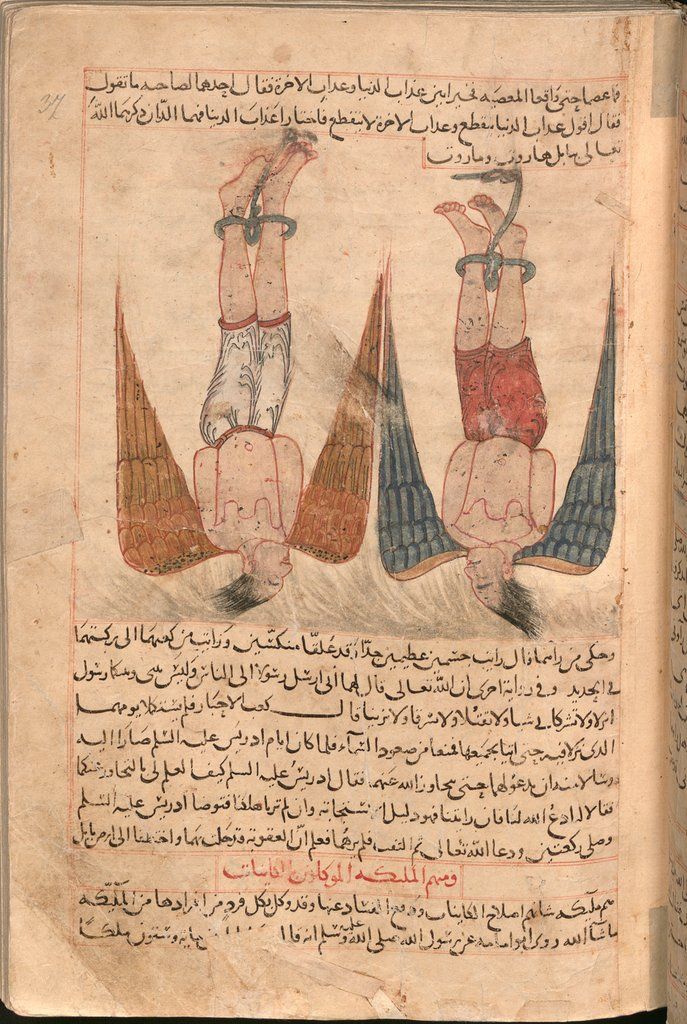 37
فاعصيا حتى واقعا المعصية فخيرا بين عذاب الدنيا وعذاب الاخرة فقال احدهما لصاحبه ما تقول
فقال اقول عذاب الدنيا ينقطع وعذاب الاخرة لا ينقطع فاختارا عذاب الدنيا فهما اللذان ذكرهما الله
تعالى ببابل هاروت وماروت
وحكى من راهما قال رايت جسمين عظيمين جدا قد علقا منكسين وراتب من كعبهما الى ركبتهما
في الحديد وفي رواية اخرى ان الله تعالى قال لهما انى ارسل رسولا الى الناس وليس بينى وبينكما رسول
انزلا ولا تشركا بى شيا ولا تقتلا ولا تسرقا ولا تزنيا قال كعب الاحبار فلم يستكملا يومهما
الذى نزلا فيه حتى اتيا بجميعها فمنعا من صعود السماء فلما كان ايام ادريس عليه السلم صارا اليه
وسالا منه ان يدعو لهما حتى يتجاوز الله عنهما فقال ادريس عليه السلم كيف العلم لى بالتجاوز عنكما
فقالا له ادع الله لنا فان رايتنا فهو دليل الاستجابة وان لم ترنا هلكنا فتوضا ادريس عليه السلم
وصلى ركعتين ودعا الله تعالى ثم التفت فلم يرهما فعلم ان العقوبة قد حلت بهما واختطفا الى ارض بابل
ومنهم الملئكة الموكلون بالكاينات
هم ملئكة شانهم اصلاح الكاينات ودفع الفساد عنها وقد وكل بكل فرد من افرادها من الملئكة
ما شاء الله روى ابو امامة عن رسول الله صلى الله عليه وسلم انه قال وستون ملكا